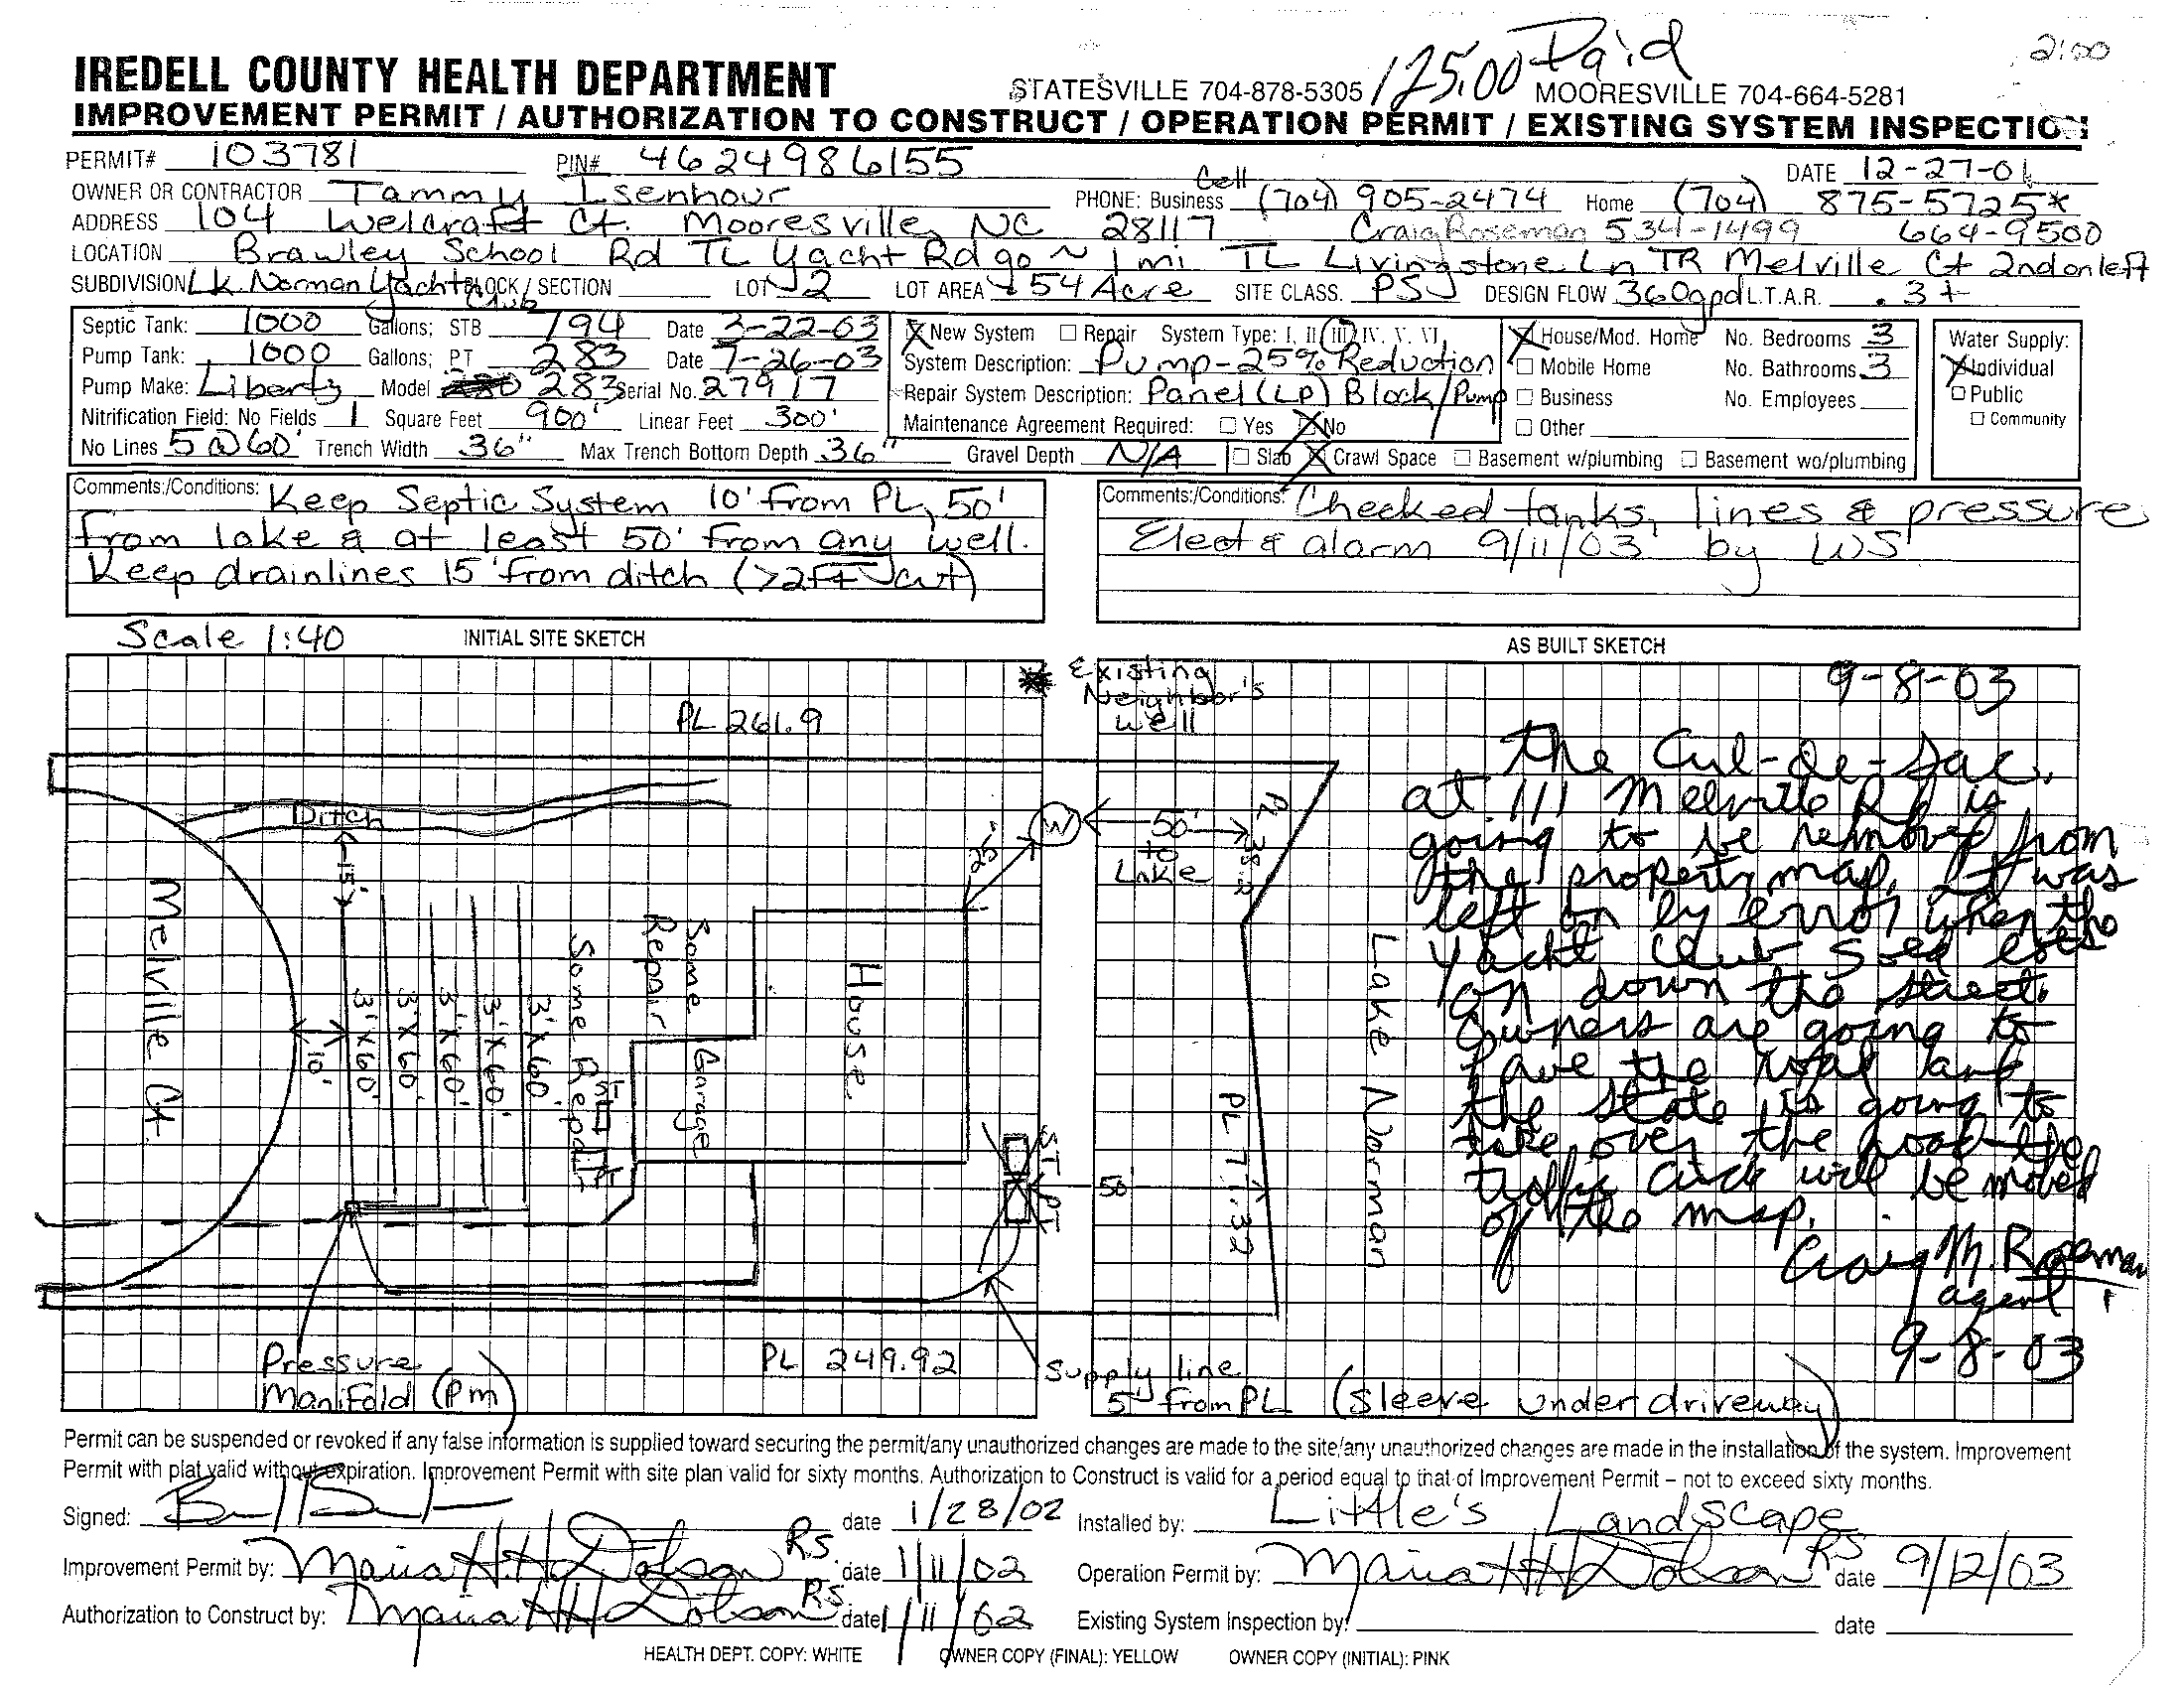 125.00 Paid
2:00
IREDELL COUNTY HEALTH DEPARTMENT STATESVILLE 704-878-5305 MOORESVILLE 704-664-5281
IMPROVEMENT PERMIT / AUTHORIZATION TO CONSTRUCT / OPERATION PERMIT / EXISTING SYSTEM INSPECTION
PERMIT# 103781 PIN# 4624986155 DATE 12-27-01
OWNER OR CONTRACTOR Tammy Isenhour PHONE: Business Cell (704) 905-2474 Home (704) 875-5725*
ADDRESS 104 Welcraft Ct. Mooresville, NC 28117 Craig Roseman 534-1499 664-9500
LOCATION Brawley School Rd TL Yacht Rd go ~ 1 mi TL Livingstone Ln TR Melville Ct 2nd on left
SUBDIVISION Lk Norman Yacht Club BLOCK / SECTION LOT 2 LOT AREA .54 Acre SITE CLASS. PS DESIGN FLOW 360gpd L.T.A.R. .3+
Septic Tank: 1000 Gallons; STB 794 Date 3-22-03
Pump Tank: 1000 Gallons; PT 283 Date 7-26-03
Pump Make: Liberty Model 283 Serial No. 27917
Nitrification Field: No Fields 1 Square Feet 900' Linear Feet 300'
No Lines 5 @ 60' Trench Width 36" Max Trench Bottom Depth 36" Gravel Depth N/A
X New System Repair System Type: I, II, III, IV, V, VI
System Description: Pump-25% Reduction
Repair System Description: Panel (LP) Block/Pump
Maintenance Agreement Required: Yes X No
X House/Mod. Home No. Bedrooms 3
Mobile Home No. Bathrooms 3
Business No. Employees
Other
Slab X Crawl Space Basement w/plumbing Basement wo/plumbing
Water Supply:
X Individual
Public
Community
Comments:/Conditions: Keep Septic System 10' from PL, 50'
from lake & at least 50' from any well.
Keep drainlines 15' from ditch (>2ft cut)
Comments:/Conditions: Checked tanks, lines & pressure
Elect & alarm 9/11/03 by WS
Scale 1:40 INITIAL SITE SKETCH
AS BUILT SKETCH
Existing
Neighbor's
well
PL 261.9
Ditch
15'
Melville Ct.
10'
3'X60'
3'X60'
3'X60'
3'X60'
3'X60'
Some Repair
Some
Repair
House
Garage
ST
PT
25'
W
50'
to
Lake
PL 38.2
Lake Norman
PL 71.32
ST
PT
50'
Pressure
Manifold (Pm)
PL 249.92
Supply line
5' from PL (Sleeve under driveway)
9-8-03
The Cul-de-sac.
at 111 Melville Rd is
going to be removed from
the property map. It was
left on by error when the
Yacht Club sold lots
on down the street.
Owners are going to
Pave the road and
the State is going to
take over the road-the
traffic circle will be moved
off the map.
Craig M. Roseman
agent
9-8-03
Permit can be suspended or revoked if any false information is supplied toward securing the permit/any unauthorized changes are made to the site/any unauthorized changes are made in the installation of the system. Improvement
Permit with plat valid without expiration. Improvement Permit with site plan valid for sixty months. Authorization to Construct is valid for a period equal to that of Improvement Permit – not to exceed sixty months.
Signed: date 1/28/02 Installed by: Little's Landscape
Improvement Permit by: Maria H.H. Dobson RS date 1/11/02 Operation Permit by: Maria HH Dobson RS date 9/12/03
Authorization to Construct by: Maria HH Dobson RS date 1/11/02 Existing System Inspection by: date
HEALTH DEPT. COPY: WHITE OWNER COPY (FINAL): YELLOW OWNER COPY (INITIAL): PINK